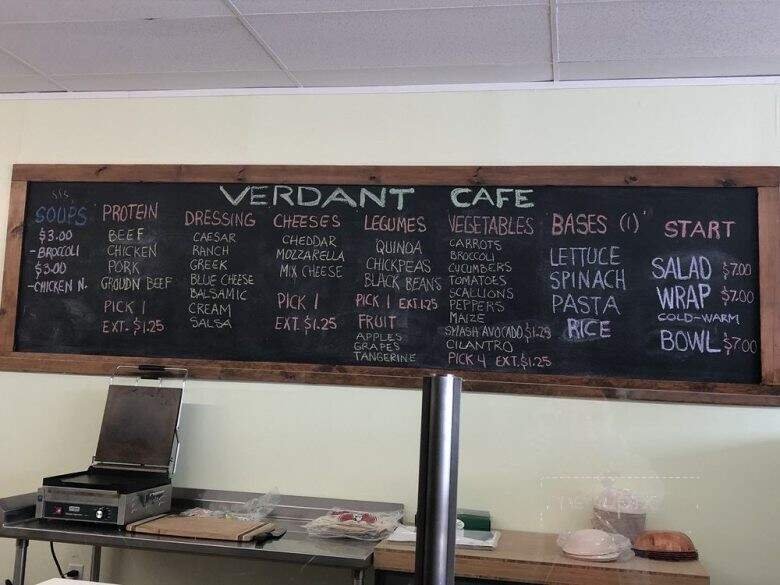 VERDANT CAFE
SOUPS
$3.00
- BROCCOLI
$3.00
- CHICKEN N.
PROTEIN
BEEF
CHICKEN
PORK
GROUDN BEEF
PICK 1
EXT. $1.25
DRESSING
CAESAR
RANCH
GREEK
BLUE CHEESE
BALSAMIC
CREAM
SALSA
CHEESES
CHEDDAR
MOZZARELLA
MIX CHEESE
PICK 1
EXT. $1.25
LEGUMES
QUINOA
CHICKPEAS
BLACK BEANS
PICK 1 EXT.1.25
FRUIT
APPLES
GRAPES
TANGERINE
VEGETABLES
CARROTS
BROCCOLI
CUCUMBERS
TOMATOES
SCALLIONS
PEPPERS
MAIZE
SMASH AVOCADO $1.25
CILANTRO
PICK 4 EXT.$1.25
BASES (1)
LETTUCE
SPINACH
PASTA
RICE
START
SALAD $7.00
WRAP $7.00
COLD-WARM
BOWL $7.00